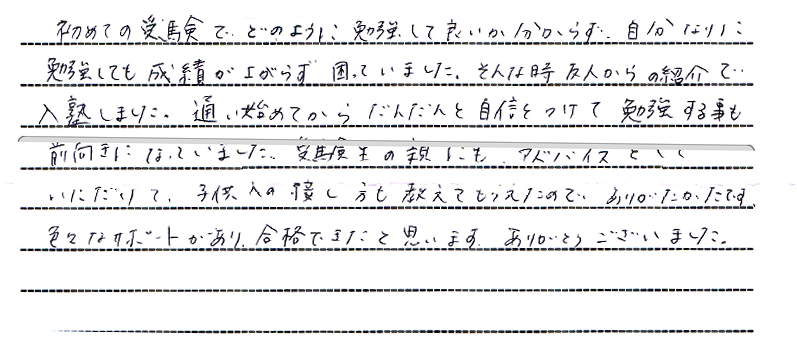 初めての受験で どのように 勉強して良いか分からず、自分なりに
勉強しても 成績が上がらず 困っていました。そんな時 友人からの紹介で
入塾しました。通い始めてから だんだんと 自信をつけて 勉強する事も
前向きになっていました。受験生の親にも アドバイスをし
いただいて、子供への接し方も教えてもらえたので ありがたかったです。
色々なサポートがあり、合格できたと思います。ありがとうございました。